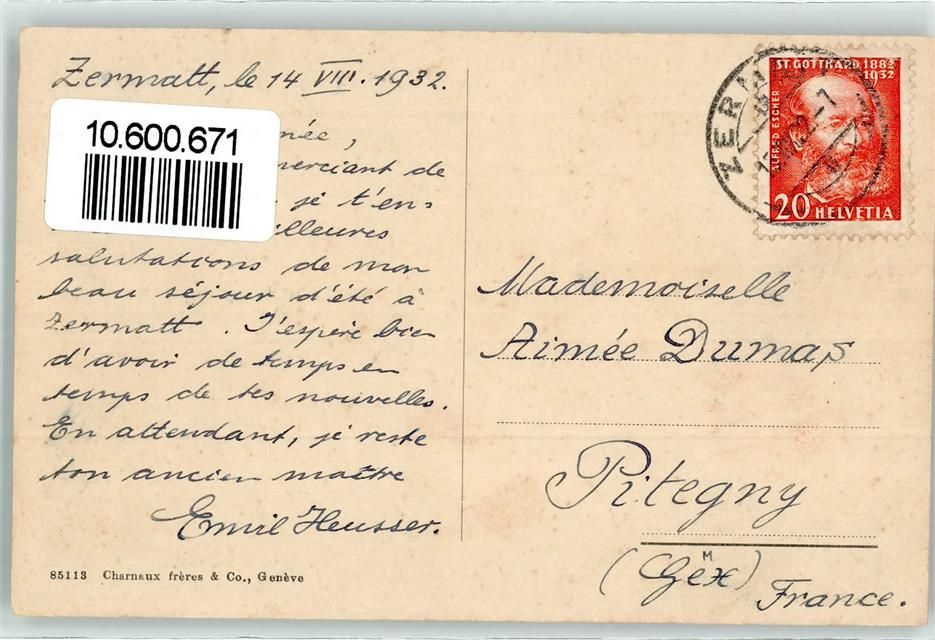 Zermatt, le 14 VIII. 1932.
10.600.671
née,
merciant de
je t'en=
illeures
salutations de mon
beau séjour d'été à
Zermatt. J'espère bien
d'avoir de temps en
temps de tes nouvelles.
En attendant, je reste
ton ancien maître
Emil Heusser.
85113 Charnaux frères & Co., Genève
ZERM
ST. GOTTHARD 1882
1932
ALFRED ESCHER
20 HELVETIA
Mademoiselle
Aimée Dumas
Pitegny
(Gex)
M
France.